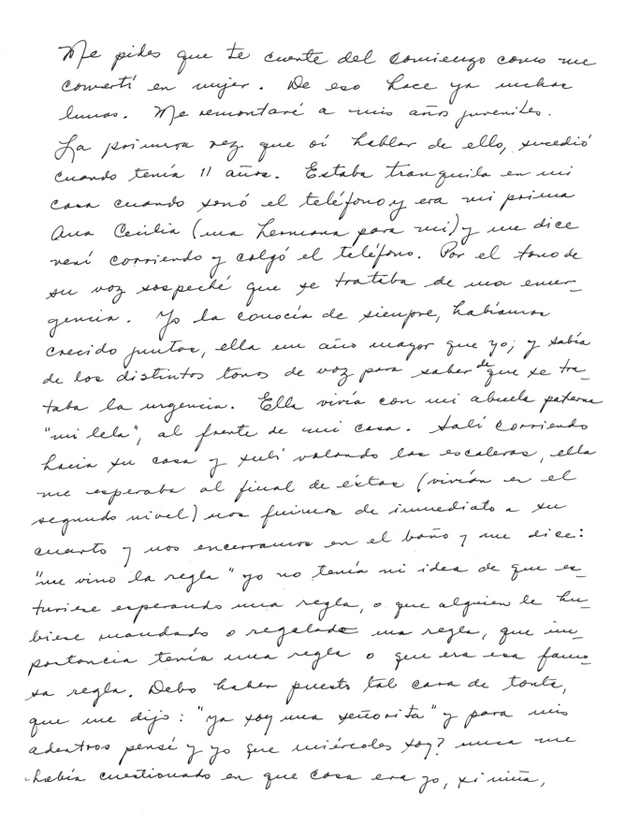 Me pides que te cuente del comienzo como me
convertí en mujer. De eso hace ya muchas
lunas. Me remontaré a mis años juveniles.
La primera vez que oí hablar de ello, sucedió
cuando tenía 11 años. Estaba tranquila en mi
casa cuando sonó el teléfono y era mi prima
Ana Cecilia (una hermana para mi) y me dice
vení corriendo y colgó el teléfono. Por el tono de
su voz sospeché que se trataba de una emer-
gencia. Yo la conocía de siempre, habíamos
crecido juntas, ella un año mayor que yo; y sabía
de los distintos tonos de voz para saber de que se tra-
taba la urgencia. Ella vivía con mi abuela paterna
"mi lela", al frente de mi casa. Salí corriendo
hacia su casa y subí volando las escaleras, ella
me esperaba al final de éstas (vivían en el
segundo nivel) nos fuimos de inmediato a su
cuarto y nos encerramos en el baño y me dice:
"me vino la regla" yo no tenía ni idea de que es-
tuviese esperando una regla, o que alguien le hu-
biese mandado o regalado una regla, que im-
portancia tenía una regla o que era esa famo-
sa regla. Debo haber puesto tal cara de tonta,
que me dijo: "ya soy una señorita" y para mis
adentros pensé y yo que miércoles soy? nunca me
había cuestionado en que cosa era yo, si niña,